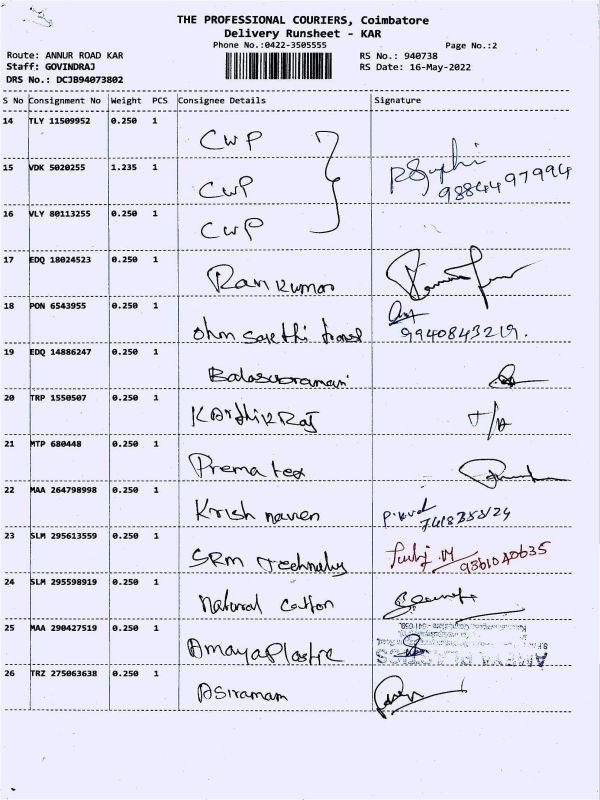 THE PROFESSIONAL COURIERS, Coimbatore
Delivery Runsheet - KAR
Phone No.:0422-3505555 Page No.:2
Route: ANNUR ROAD KAR RS No.: 940738
Staff: GOVINDRAJ RS Date: 16-May-2022
DRS No.: DCJB94073802
S No Consignment No Weight PCS Consignee Details Signature
14 TLY 11509952 0.250 1 CWP
15 VDK 5020255 1.235 1 CWP 9884497994
16 VLY 80113255 0.250 1 CWP
17 EDQ 18024523 0.250 1 Ramkumar
18 PON 6543955 0.250 1 Ohm 9940843219.
19 EDQ 14886247 0.250 1 Balasubramani
20 TRP 1550507 0.250 1 KArthikRaj
21 MTP 680448 0.250 1 Prema tex
22 MAA 264798998 0.250 1 Krish naven
23 SLM 295613559 0.250 1 SRM 9361040635
24 SLM 295598919 0.250 1 Natural Cotton
25 MAA 290427519 0.250 1 AmayaPlastre
26 TRZ 275063638 0.250 1 ASiramam